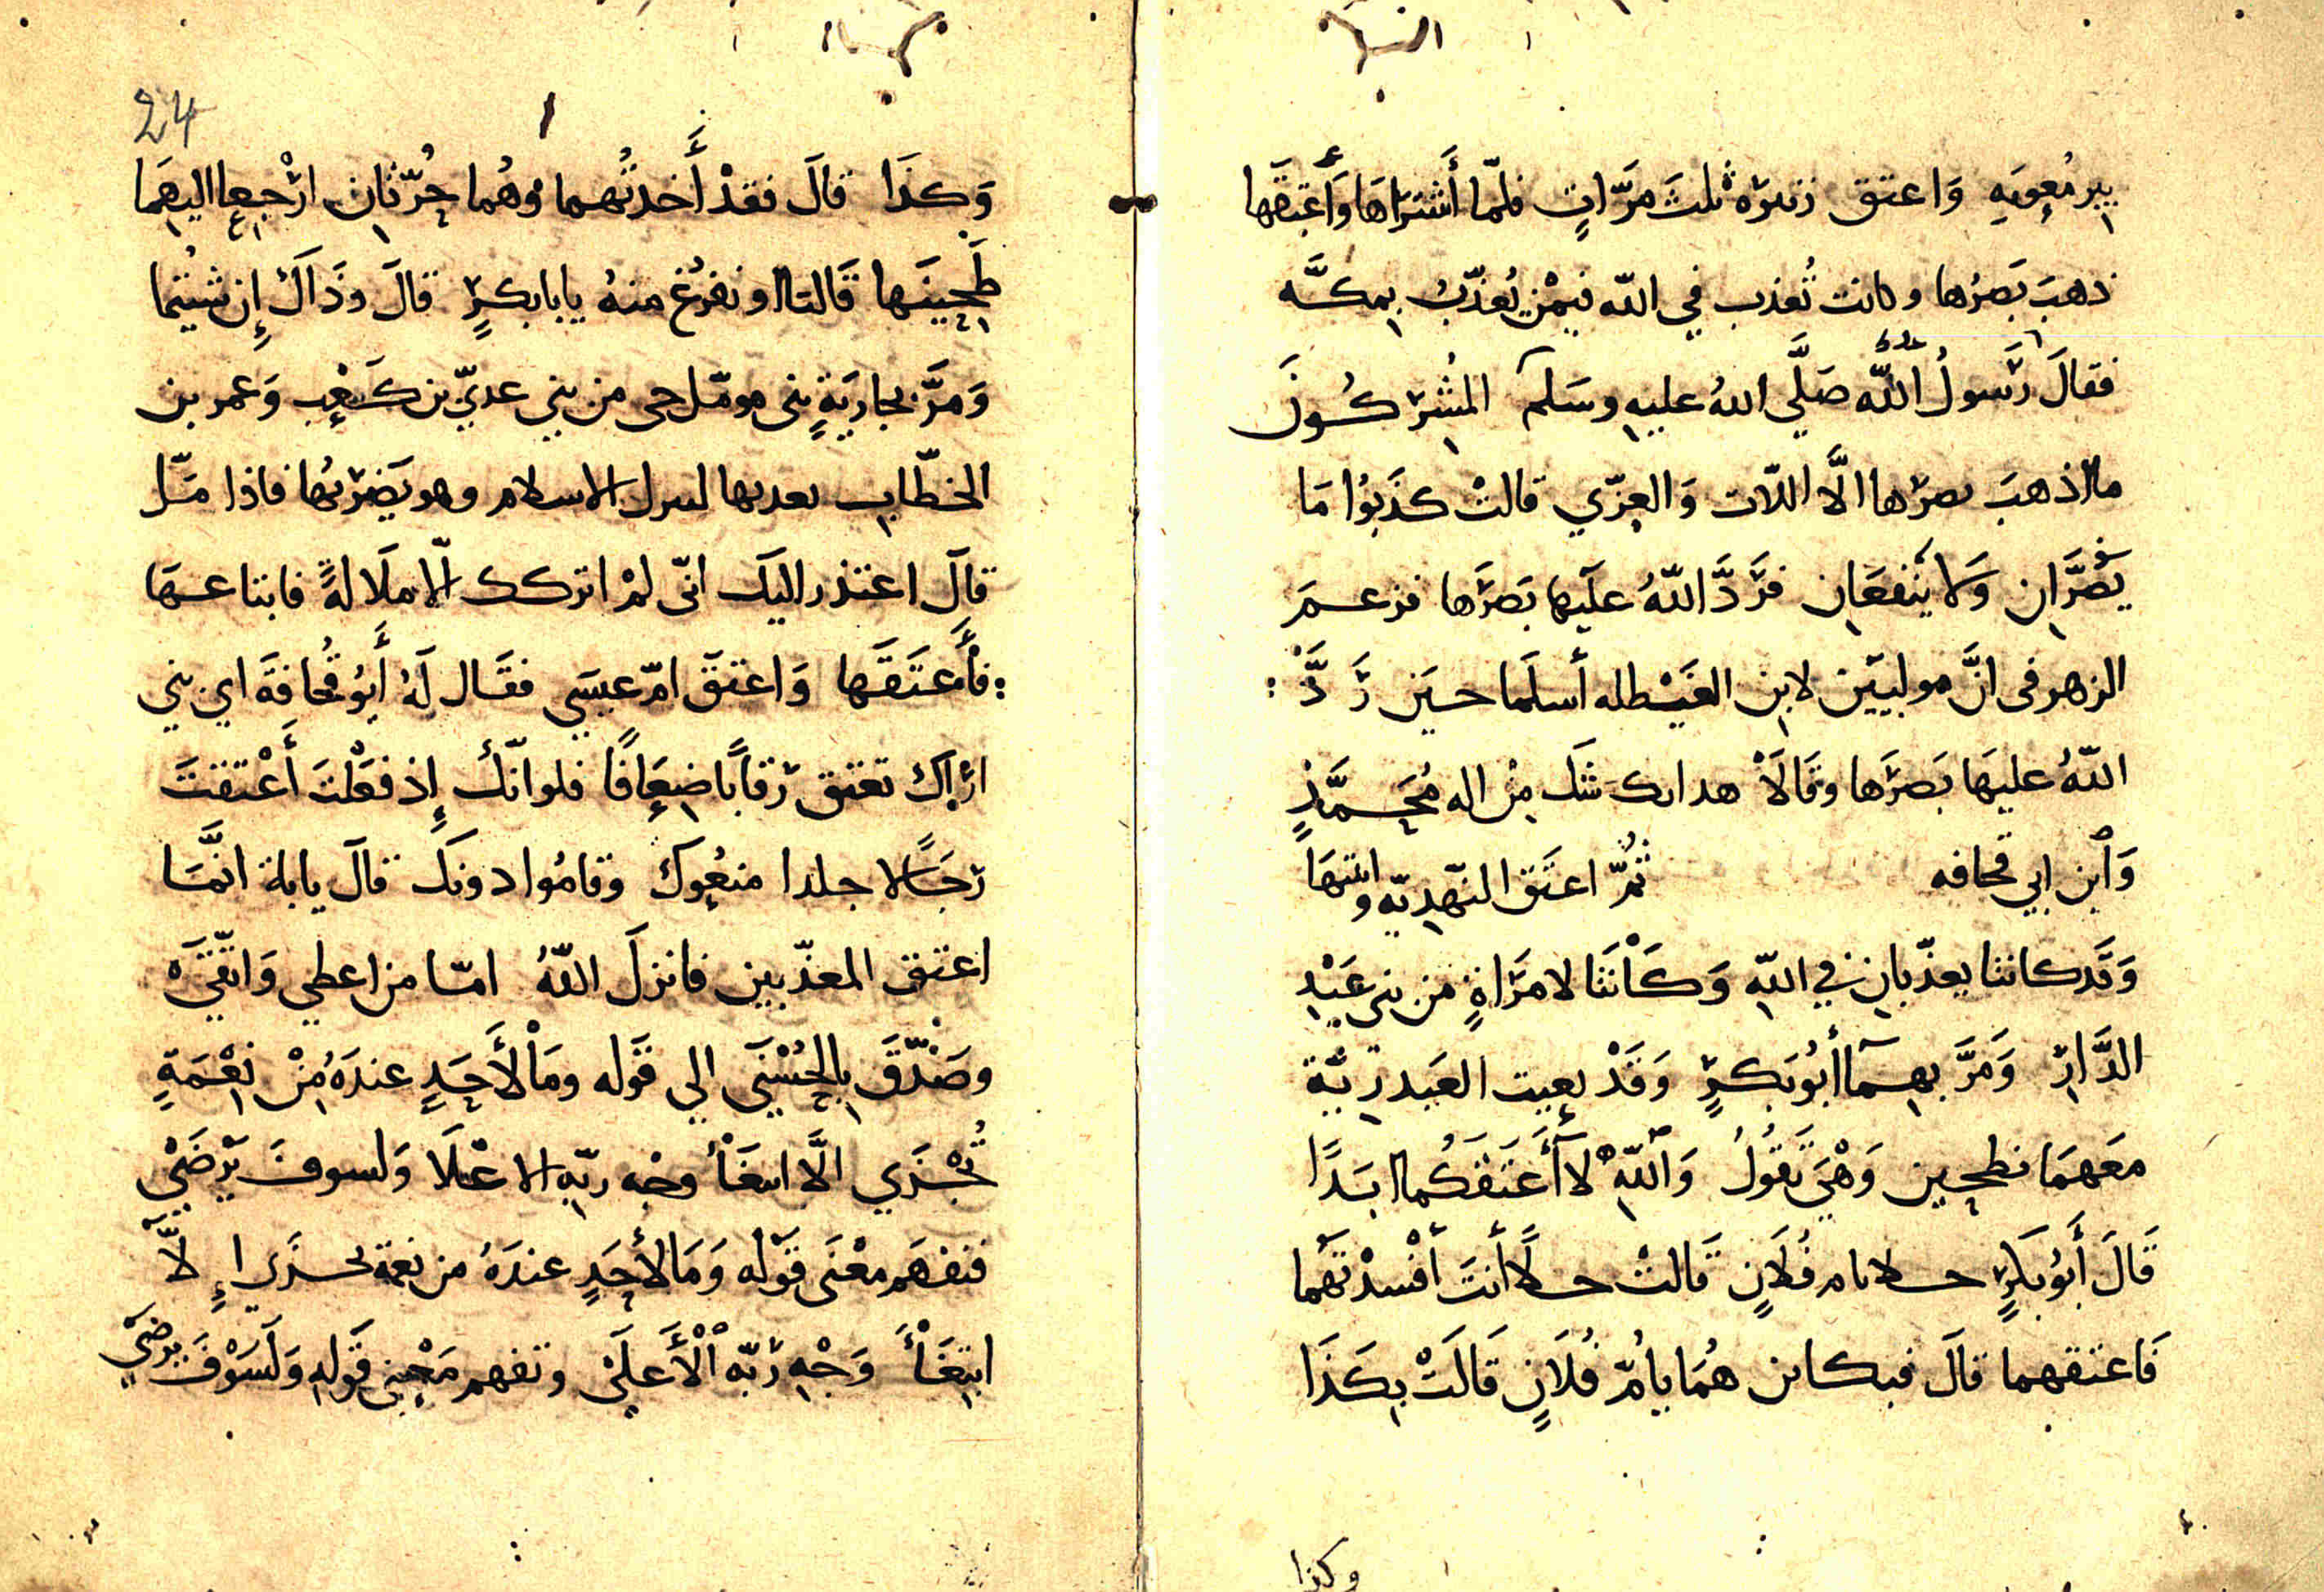 ببير معويه وَاعتق زنيره ثلث مرَّاتٍ فلمّا أشترَاهَا وَأَعْتِقَها
ذهبَ بَصَرُها وكانت تُعذب في اللّه فيمْن يُعذّبُ بِمكَّه
فقالَ رَسولُ اللَّه صَلَّي اللهُ عليهِ وسَلم المُشِرِكُونَ
ما اذهبَ بصرَها الَّا اللّات وَالعِزّي قالتْ كذَبوُا مَا
يَضُرَّانِ وَلَا يَنْفعَانِ فرَدَّ اللّهُ علَيها بَصَرَها فزعمَ
الزهرى انَّ موليبَين لابن الغَيْطله أسلَما حسَين رَدَّ :
اللّهُ عليهَا بَصَرَها وقَالَا هدا شك مِنْ اله مُحَمَّدٍ
وَأبن ابي قحافه ثُمَّ اعتَق النّهدِيّه وابنتهَا
وَقَد كانتا يعذّبانِ في اللّهِ وَكَانَتا لامرَاةٍ من بنى عَبْدِ
الدَّارِ وَمَرَّ بهِمَا أبُوبَكرٍ وَقَدْ بعِيت العَبدرِيّة
مَعَهمَا نطحِين وَهْيَ تَقُولُ وَاللّهِ لَا أَعتَقَكُما ابدًا
قَالَ أَبوُ بَكرٍ حلا يام فُلَانٍ قَالتْ حلًا أنتَ أفْسدْتَهُما
فَاعتقهما قالَ فبكاين هُمَا يامُّ فُلَانٍ قَالَتْ بِكَذَا
وكذا
24
وَكذَا قالَ فقدْ أَخذتُهما وهُما حُرّتَانِ ارْجِعِا اليهِمَا
طَحِينَها قَالتا او نفرُغ منهُ يابابكرٍ قالَ وذَاكَ إِن شيُتما
وَمَرَّ بجاريَةٍ بنى مومّل حى من بني عديّ بن كَعْبٍ وَعمر بن
الخطّابِ يعدبها لترك الاسلام وهو يَضرِبُها فاذا مَلَّ
قالَ اعتذر اليكَ انّى لمْ اتركك الّا ملَالةً فابتاعهَا
: فأَعتَقَها وَاعتقَ امّ عبسَي فقَال لَهُ أَبوُ قُحافةَ اي بني
ارَاكَ تعتق رقابًا ضِعَافًا فلو انّكَ إِذ فعَلْتَ أَعْتقتَ
رجَالا جلدا منعُوكَ وقامُوا دونكَ قالَ يابة انَّمَا
اعتق المعذّبين فانزلَ اللّهُ امّا من اعطي وَاتّقَي
وصَدّقَ بِالحُسْنَي الي قوله ومَا لأَحَدٍ عندَهُ مِنْ نِعْمَةٍ
تُجْزَي الَّا ابتغَأ وجْه ربّهِ الاعْلَا وَلسوفَ يَرْضَيْ
فنفهَم معْنَى قَوْله وَمَا لأَحَدٍ عندَهُ من نعمة تجزَى إِلَّا
ابتِغَأَ وَجْهِ رَبّه الْأَعلَى وتفهم مَعْنِى قَولِهِ وَلَسَوْفَ يرضَي